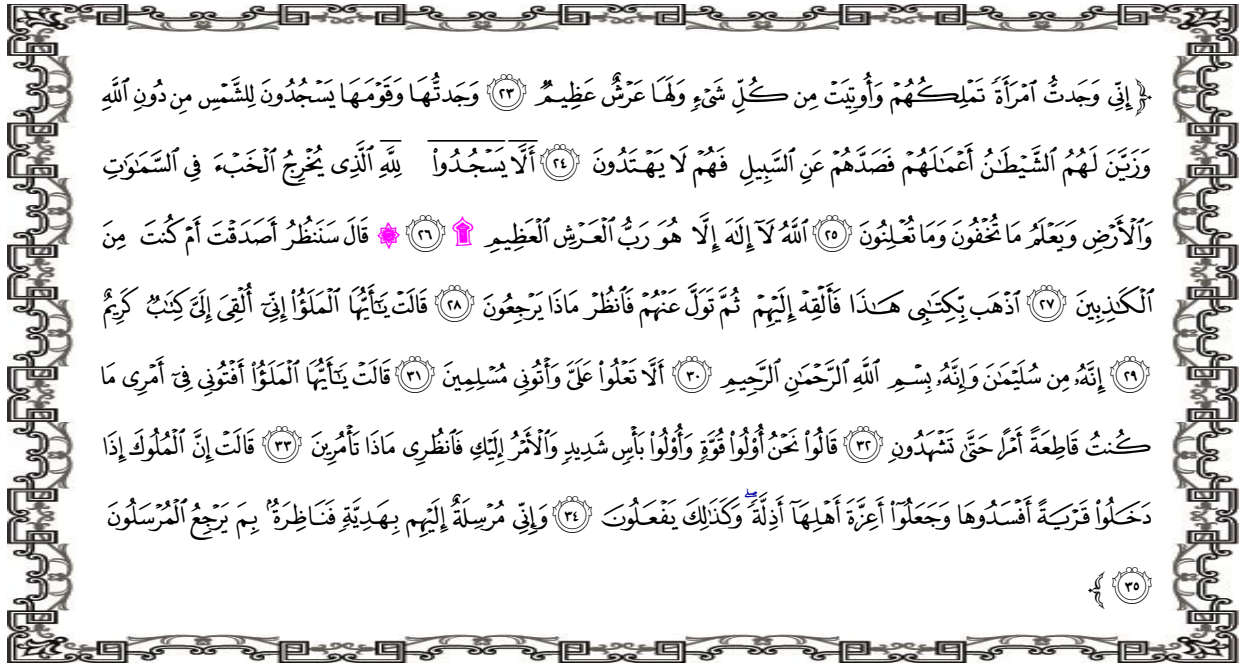 ﴿ إِنِّي وَجَدتُّ ٱمْرَأَةً تَمْلِكُهُمْ وَأُوتِيَتْ مِن كُلِّ شَيْءٍ وَلَهَا عَرْشٌ عَظِيمٌ ٢٣ وَجَدتُّهَا وَقَوْمَهَا يَسْجُدُونَ لِلشَّمْسِ مِن دُونِ ٱللَّهِ
وَزَيَّنَ لَهُمُ ٱلشَّيْطَٰنُ أَعْمَٰلَهُمْ فَصَدَّهُمْ عَنِ ٱلسَّبِيلِ فَهُمْ لَا يَهْتَدُونَ ٢٤ أَلَّا يَسْجُدُوا۟ لِلَّهِ ٱلَّذِى يُخْرِجُ ٱلْخَبْءَ فِى ٱلسَّمَٰوَٰتِ
وَٱلْأَرْضِ وَيَعْلَمُ مَا تُخْفُونَ وَمَا تُعْلِنُونَ ٢٥ ٱللَّهُ لَآ إِلَٰهَ إِلَّا هُوَ رَبُّ ٱلْعَرْشِ ٱلْعَظِيمِ ۩ ٢٦ ۞ قَالَ سَنَنظُرُ أَصَدَقْتَ أَمْ كُنتَ مِنَ
ٱلْكَٰذِبِينَ ٢٧ ٱذْهَب بِّكِتَٰبِى هَٰذَا فَأَلْقِهْ إِلَيْهِمْ ثُمَّ تَوَلَّ عَنْهُمْ فَٱنظُرْ مَاذَا يَرْجِعُونَ ٢٨ قَالَتْ يَٰٓأَيُّهَا ٱلْمَلَؤُا۟ إِنِّىٓ أُلْقِىَ إِلَىَّ كِتَٰبٌ كَرِيمٌ
٢٩ إِنَّهُۥ مِن سُلَيْمَٰنَ وَإِنَّهُۥ بِسْمِ ٱللَّهِ ٱلرَّحْمَٰنِ ٱلرَّحِيمِ ٣٠ أَلَّا تَعْلُوا۟ عَلَىَّ وَأْتُونِى مُسْلِمِينَ ٣١ قَالَتْ يَٰٓأَيُّهَا ٱلْمَلَؤُا۟ أَفْتُونِى فِىٓ أَمْرِى مَا
كُنتُ قَاطِعَةً أَمْرًا حَتَّىٰ تَشْهَدُونِ ٣٢ قَالُوا۟ نَحْنُ أُو۟لُوا۟ قُوَّةٍ وَأُو۟لُوا۟ بَأْسٍ شَدِيدٍ وَٱلْأَمْرُ إِلَيْكِ فَٱنظُرِى مَاذَا تَأْمُرِينَ ٣٣ قَالَتْ إِنَّ ٱلْمُلُوكَ إِذَا
دَخَلُوا۟ قَرْيَةً أَفْسَدُوهَا وَجَعَلُوٓا۟ أَعِزَّةَ أَهْلِهَآ أَذِلَّةً ۖ وَكَذَٰلِكَ يَفْعَلُونَ ٣٤ وَإِنِّى مُرْسِلَةٌ إِلَيْهِم بِهَدِيَّةٍ فَنَاظِرَةٌۢ بِمَ يَرْجِعُ ٱلْمُرْسَلُونَ
٣٥ ﴾